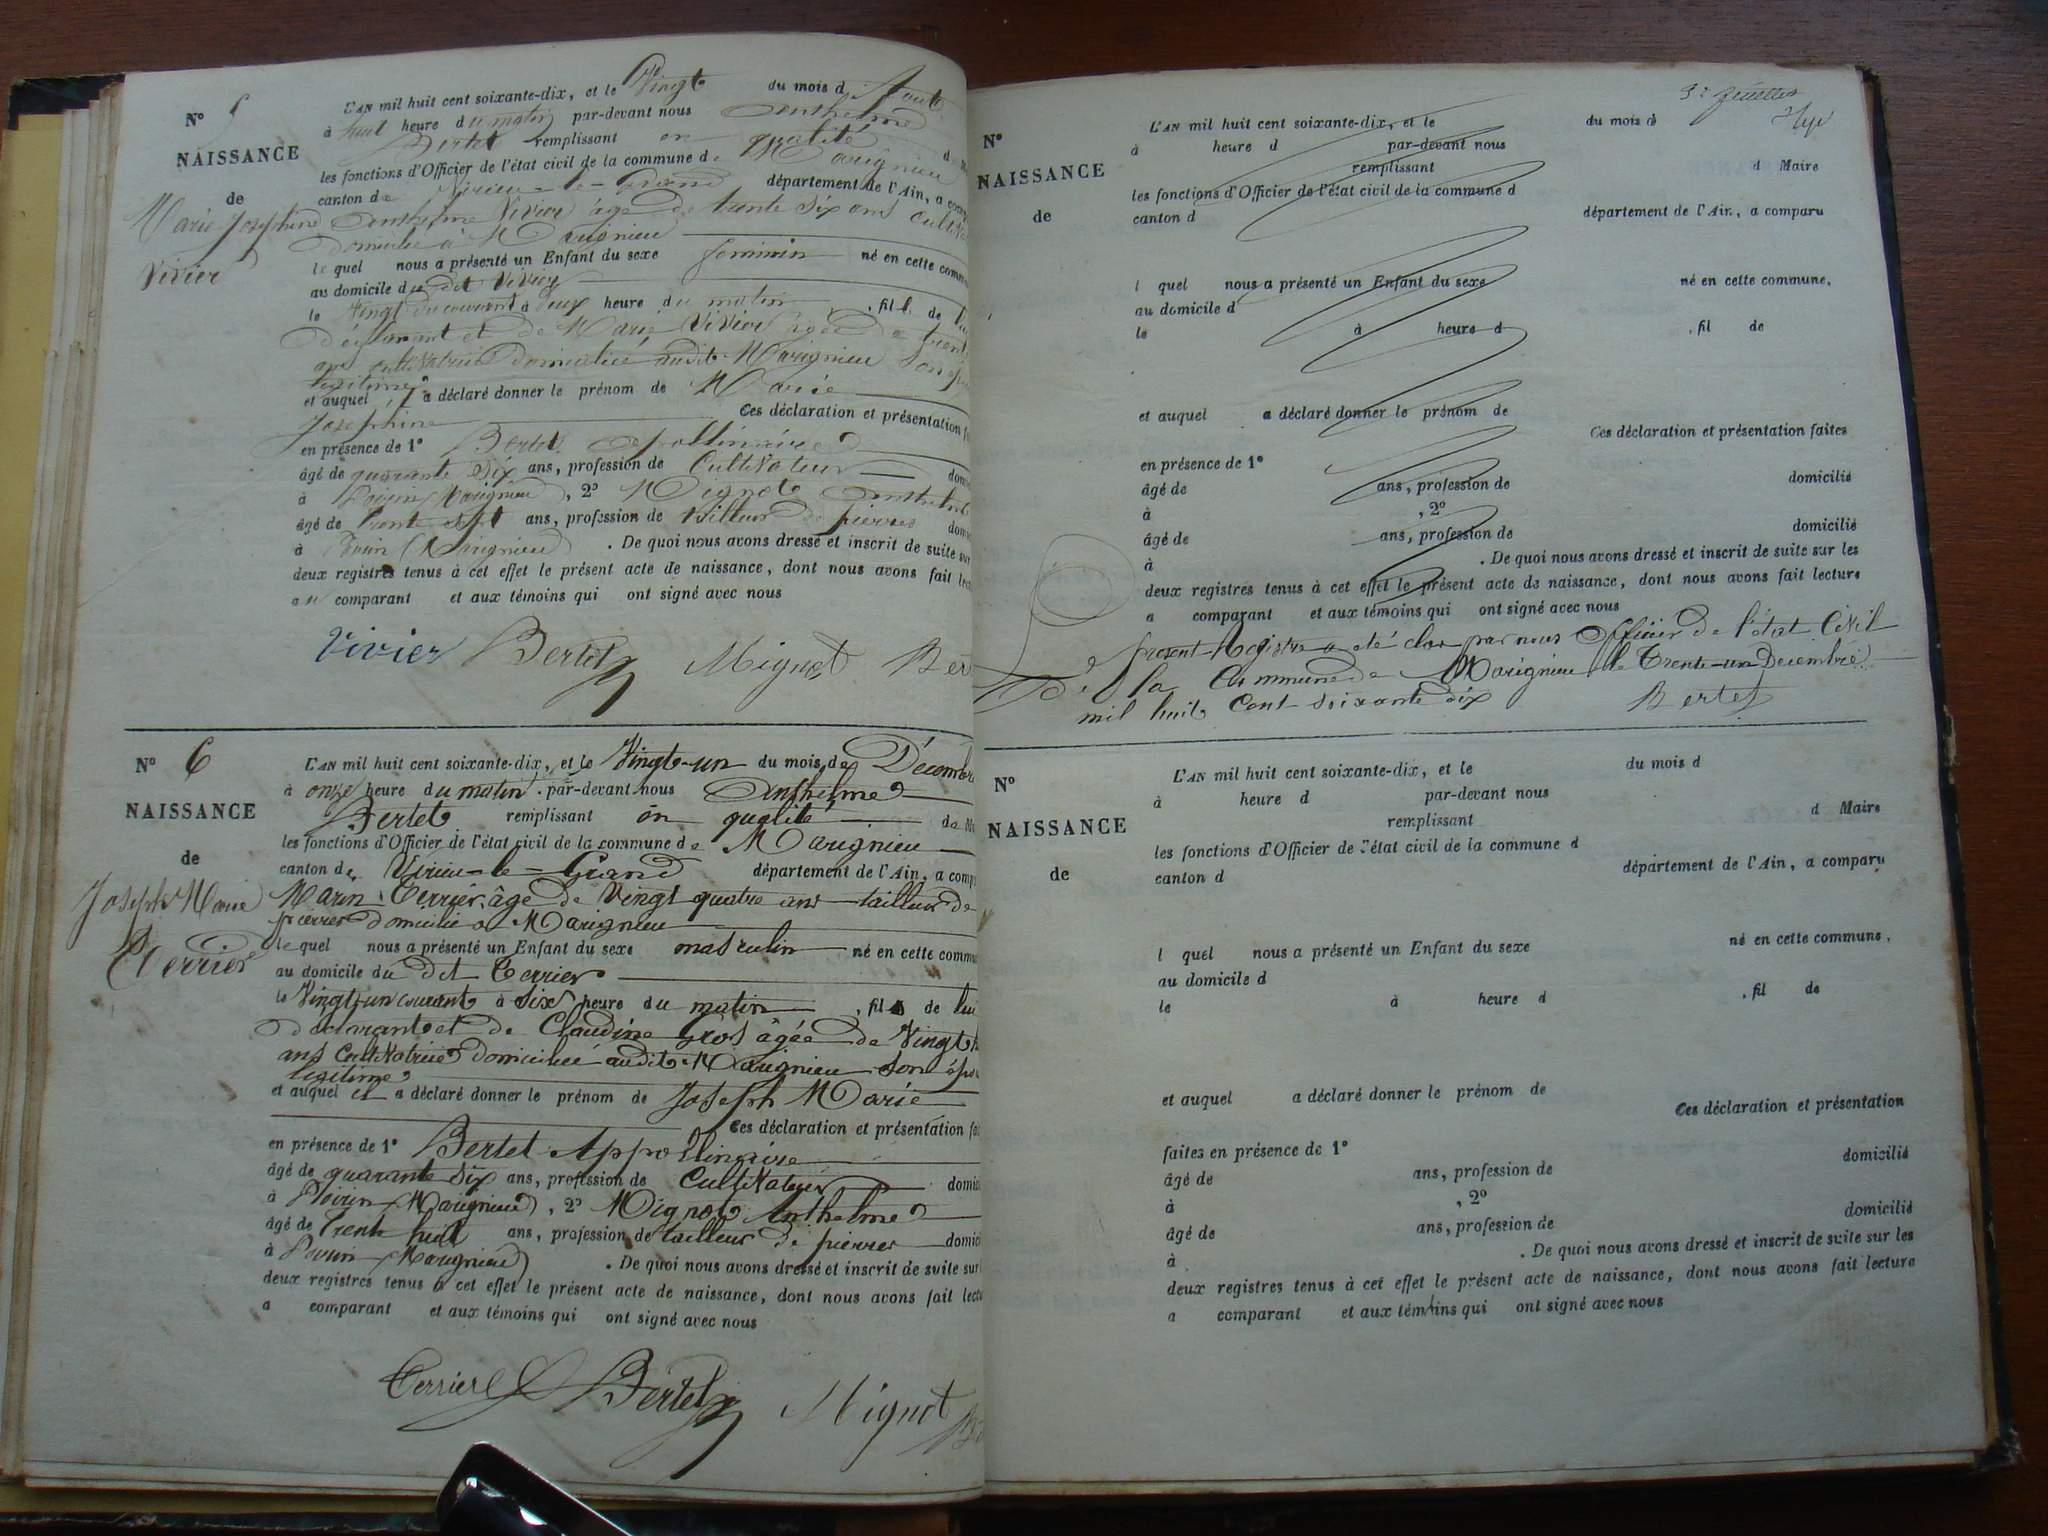 N° 5
NAISSANCE
de
Marie Joséphine
Vivier
L'AN mil huit cent soixante-dix, et le Vingt du mois d'Août
à huit heure du matin par-devant nous Anthelme
Bertet remplissant en qualité d
les fonctions d'Officier de l'état civil de la commune de Marignieu
canton de Virieu-le-Grand département de l'Ain, a comp
Anthelme Vivier âgé de trente six ans cultiva
domicilié à Marignieu
le quel nous a présenté un Enfant du sexe feminin né en cette comm
au domicile du dit Vivier
le Vingt du courant à deux heure du matin, fille de lui
déclarant et de Marie Vivier âgée de trente
ans cultivatrice domiciliée audit Marignieu son épou
légitime
et auquel il a déclaré donner le prénom de Marie
Joséphine Ces déclaration et présentation fa
en présence de 1° Bertet Appollinaire
âgé de quarante six ans, profession de Cultivateur domi
à Poirin Marignieu, 2° Mignot Anthelme
âgé de trente sept ans, profession de tailleur de pierres domi
à Poirin (Marignieu). De quoi nous avons dressé et inscrit de suite sur
deux registres tenus à cet effet le présent acte de naissance, dont nous avons fait lect
au comparant et aux témoins qui ont signé avec nous
Vivier Bertet Mignot Ber
N° 6
NAISSANCE
de
Joseph Marie
Terrier
L'AN mil huit cent soixante-dix, et le Vingt-un du mois de Décembre
à onze heure du matin par-devant nous Anthelme
Bertet remplissant en qualité de M
les fonctions d'Officier de l'état civil de la commune de Marignieu
canton de Virieu-le-Grand département de l'Ain, a comp
Marin Terrier âgé de Vingt quatre ans tailleur de
pierres domicilié à Marignieu
le quel nous a présenté un Enfant du sexe masculin né en cette commu
au domicile du dit Terrier
le Vingt-un courant à six heure du matin, fil de lui
déclarant et de Claudine Gros âgée de Vingt
ans Cultivatrice domiciliée audit Marignieu son épou
légitime
et auquel il a déclaré donner le prénom de Joseph Marie
Ces déclaration et présentation fai
en présence de 1° Bertet Appollinaire
âgé de quarante six ans, profession de Cultivateur domici
à Poirin Marignieu, 2° Mignot Anthelme
âgé de Trente huit ans, profession de tailleur de pierres domici
à Poirin Marignieu. De quoi nous avons dressé et inscrit de suite sur
deux registres tenus à cet effet le présent acte de naissance, dont nous avons fait lectu
a comparant et aux témoins qui ont signé avec nous
Terrier Bertet Mignot Be
feuillet
N°
NAISSANCE
de
L'AN mil huit cent soixante-dix, et le du mois d
à heure d par-devant nous
remplissant d Maire
les fonctions d'Officier de l'état civil de la commune d
canton d département de l'Ain, a comparu
l quel nous a présenté un Enfant du sexe né en cette commune,
au domicile d
le à heure d , fil de
et auquel a déclaré donner le prénom de
Ces déclaration et présentation faites
en présence de 1°
âgé de ans, profession de domicilié
à , 2°
âgé de ans, profession de domicilié
à . De quoi nous avons dressé et inscrit de suite sur les
deux registres tenus à cet effet le présent acte de naissance, dont nous avons fait lecture
a comparant et aux témoins qui ont signé avec nous
Le présent Registre a été clos par nous Officier de l'état Civil
de la Commune de Marignieu le Trente-un Decembre
mil huit cent soixante dix Bertet
N°
NAISSANCE
de
L'AN mil huit cent soixante-dix, et le du mois d
à heure d par-devant nous
remplissant d Maire
les fonctions d'Officier de l'état civil de la commune d
canton d département de l'Ain, a comparu
l quel nous a présenté un Enfant du sexe né en cette commune,
au domicile d
le à heure d , fil de
et auquel a déclaré donner le prénom de
Ces déclaration et présentation
faites en présence de 1°
âgé de ans, profession de domicilié
à , 2°
âgé de ans, profession de domicilié
à . De quoi nous avons dressé et inscrit de suite sur les
deux registres tenus à cet effet le présent acte de naissance, dont nous avons fait lecture
a comparant et aux témoins qui ont signé avec nous